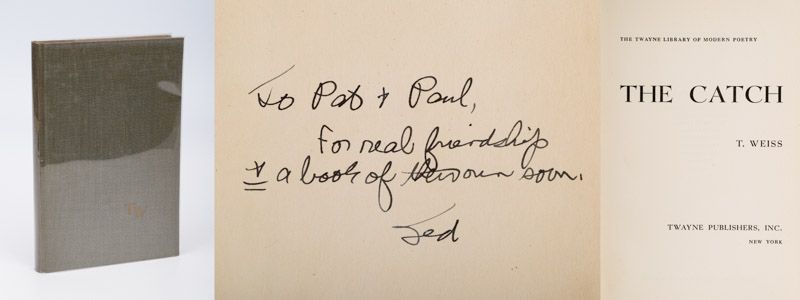 To Pat & Paul,
For real friendship
& a book of their own soon.
Ted
THE TWAYNE LIBRARY OF MODERN POETRY
THE CATCH
T. WEISS
TWAYNE PUBLISHERS, INC.
NEW YORK